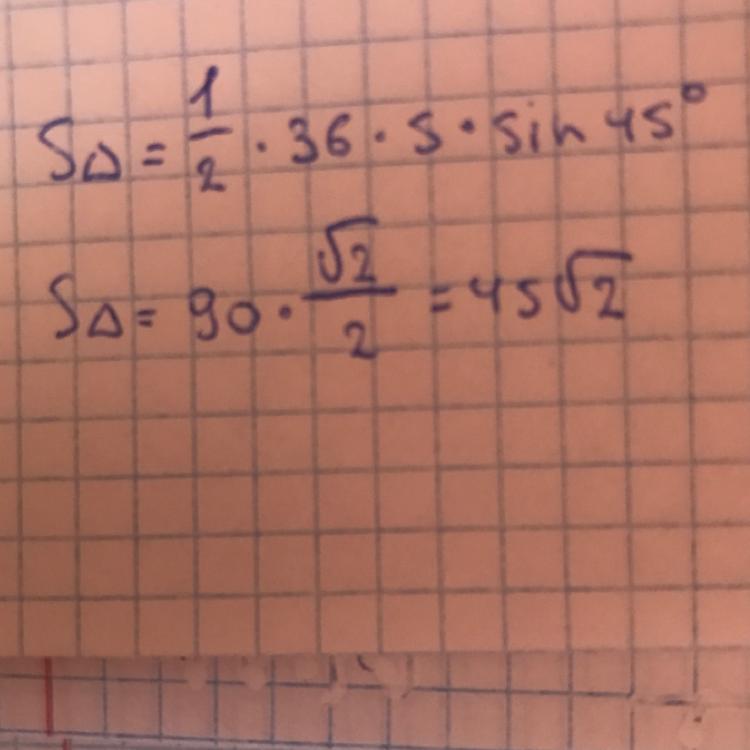 S△ = 1/2 · 36 · 5 · sin 45°
S△ = 90 · √2/2 = 45√2